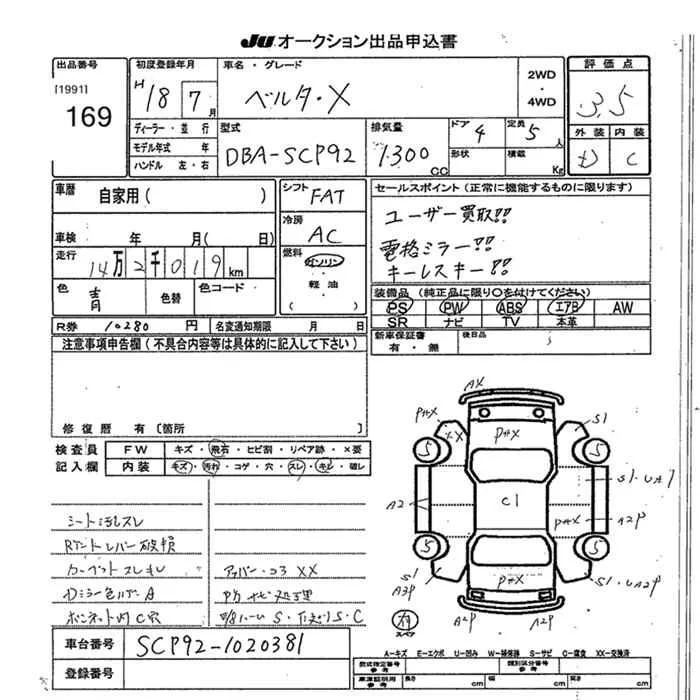 JU オークション出品申込書
出品番号
[1991]
169
初度登録年月
H 18 7 月
ディーラー・並行
モデル年式 年
ハンドル 左・右
車名・グレード
ベルタ・X
2WD
・
4WD
評価点
3.5
外装 内装
D C
型式
DBA-SCP92
排気量
1300 CC
ドア 4
形状
定員 5 人
積載 Kg
車歴
自家用( )
車検 年 月( 日)
走行
14万2千019 km
色
青
色替
色コード
R券 10280 円
名変通知期限 月 日
シフト
FAT
冷房
AC
燃料
ガソリン
・
軽油
・
( )
セールスポイント(正常に機能するものに限ります)
ユーザー買取!!
電格ミラー!!
キーレスキー!!
装備品(純正品に限り○を付けてください)
PS PW ABS エアB AW
SR ナビ TV 本革
新車保証書
有・無
後日品
注意事項申告欄(不具合内容等は具体的に記入して下さい)
修復歴 有〔箇所 〕
検査員
記入欄
FW キズ・飛石・ヒビ割・リペア跡・×要
内装 キズ・汚れ・コゲ・穴・スレ・キレ・破レ
シート汚レスレ
RTシートレバー破損
カーペットスレキレ
Dミラー色ハゲA
ボンネット灯C穴
コアXX
ナビ処理
S・C
車台番号 SCP92-1020381
登録番号
AX
PHX
XX
PHX
S1
S
S
S1・UA1
A2
C1
PHX
A2P
S
S
S1
A2P
PHX
S1・UA2P
A2P
A2P
有
スペア
A-キズ E-エクボ U-凹み W-補修跡 S-サビ C-腐食 XX-交換済
型式指定番号
参考
類別区分番号
参考
車庫証明用
参考
長さ cm
幅 cm
高さ cm